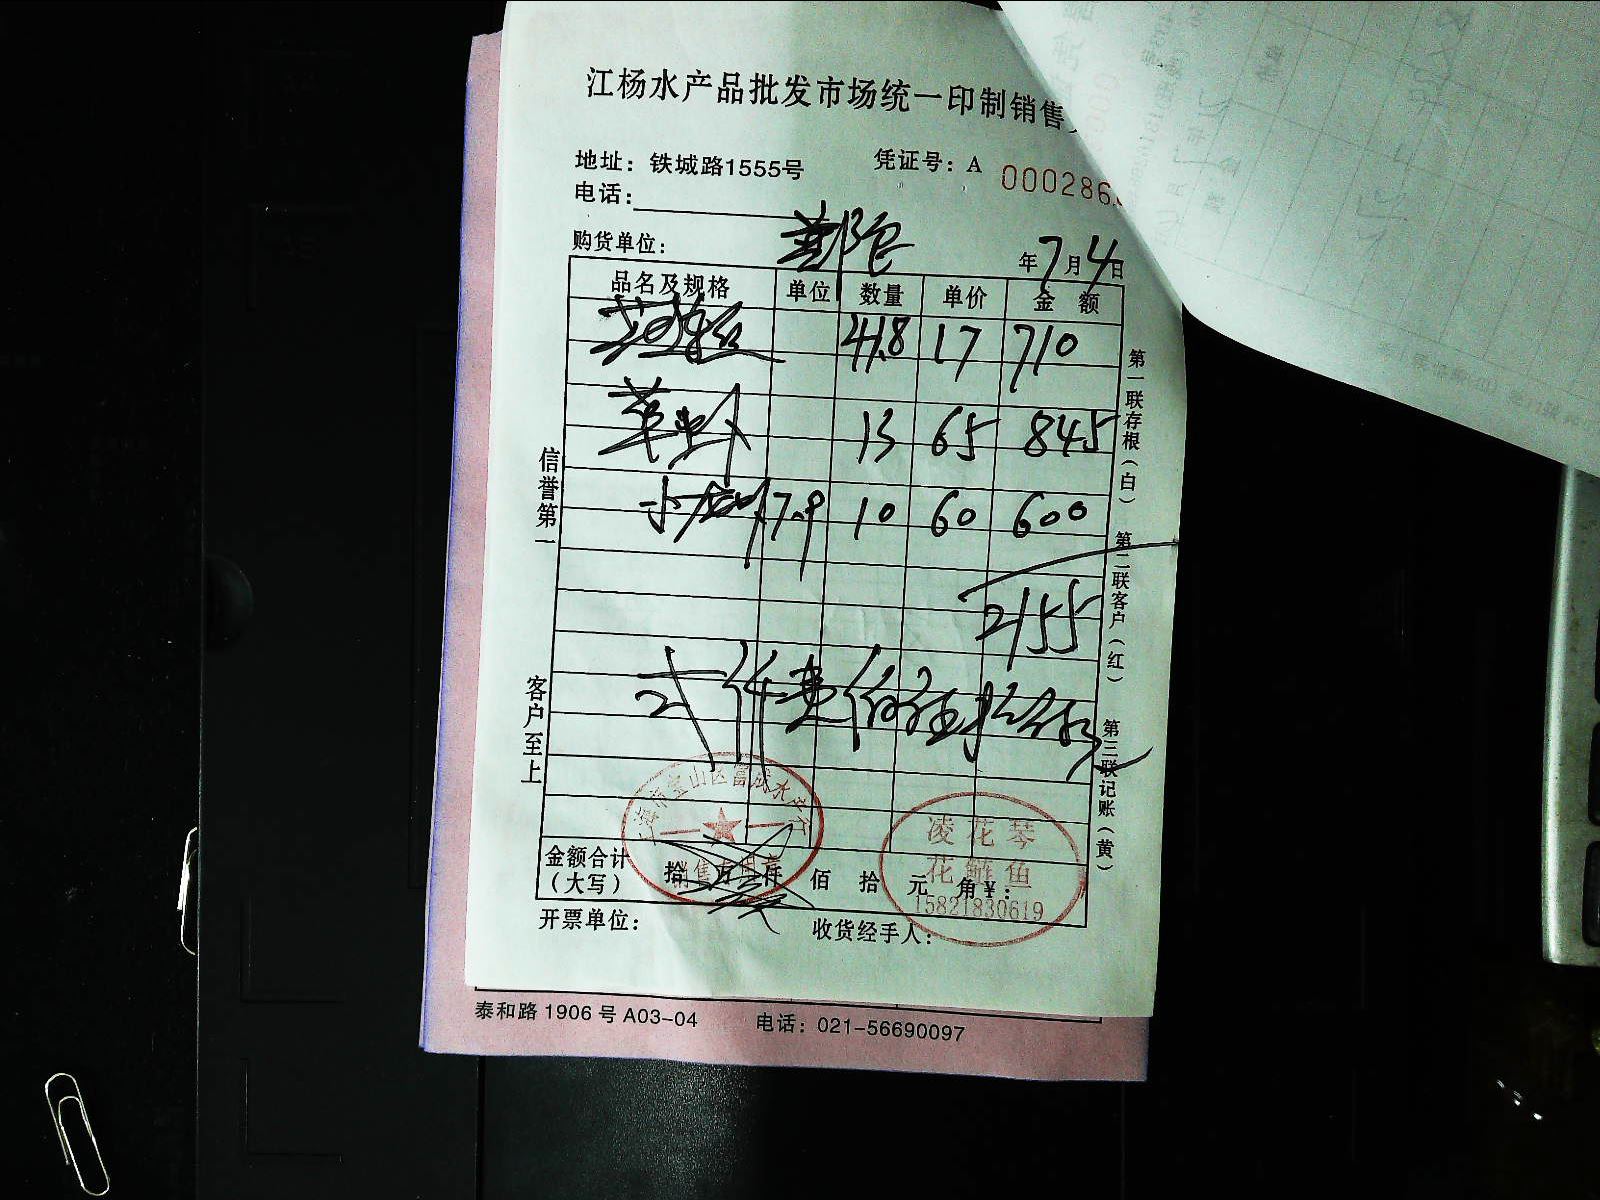 江杨水产品批发市场统一印制销售
地址：铁城路1555号 凭证号：A 000286
电话：
购货单位： 年7月4日
品名及规格 单位 数量 单价 金额
41.8 17 710
草虾 13 65 845
小龙虾 7.9 10 60 600
2155
贰仟壹佰伍拾伍
信誉第一
客户至上
第一联存根（白）
第二联客户（红）
第三联记账（黄）
上海市宝山区富成水产行
销售专用章
凌花琴
花鲢鱼
15821830619
金额合计（大写） 拾 万 仟 佰 拾 元 角 ¥：
开票单位： 收货经手人：
泰和路 1906 号 A03-04 电话：021-56690097